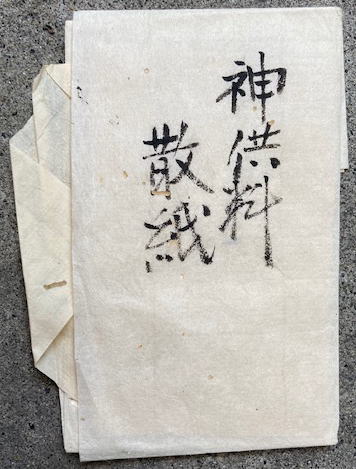 神供料
散紙